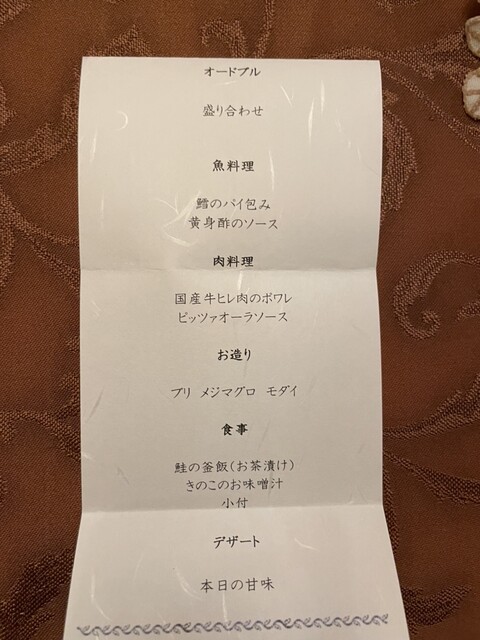 オードブル
盛り合わせ
魚料理
鱈のパイ包み
黄身酢のソース
肉料理
国産牛ヒレ肉のポワレ
ピッツァオーラソース
お造り
ブリ メジマグロ モダイ
食事
鮭の釜飯(お茶漬け)
きのこのお味噌汁
小付
デザート
本日の甘味